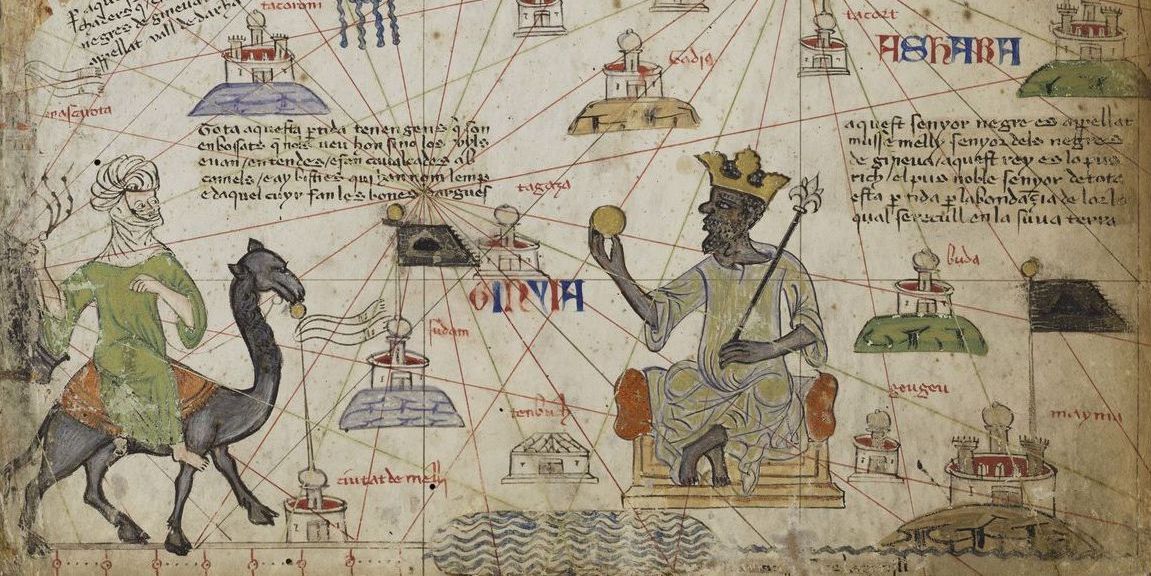 tacaroni
tacort
ASHARA
appellat vall de darha
Gadiq
Tota aquesta ptida tenen gens q son
enbossats q nols veu hom sino los uyls
e van en tendes e fan cavalcades ab
camels e ay bisties qui han nom lemp
e daquel cuyr fan les bones dargues
aquest senyor negre es appellat
musse melly senyor dels negres
de gineva aquest rey es lo pus
rich el pus noble senyor de tota
esta ptida p labondançia de lor lo
qual se recull en la suua terra
tagaza
buda
GINYIA
sudam
tenbuch
geugeu
mayma
ciutat de melly